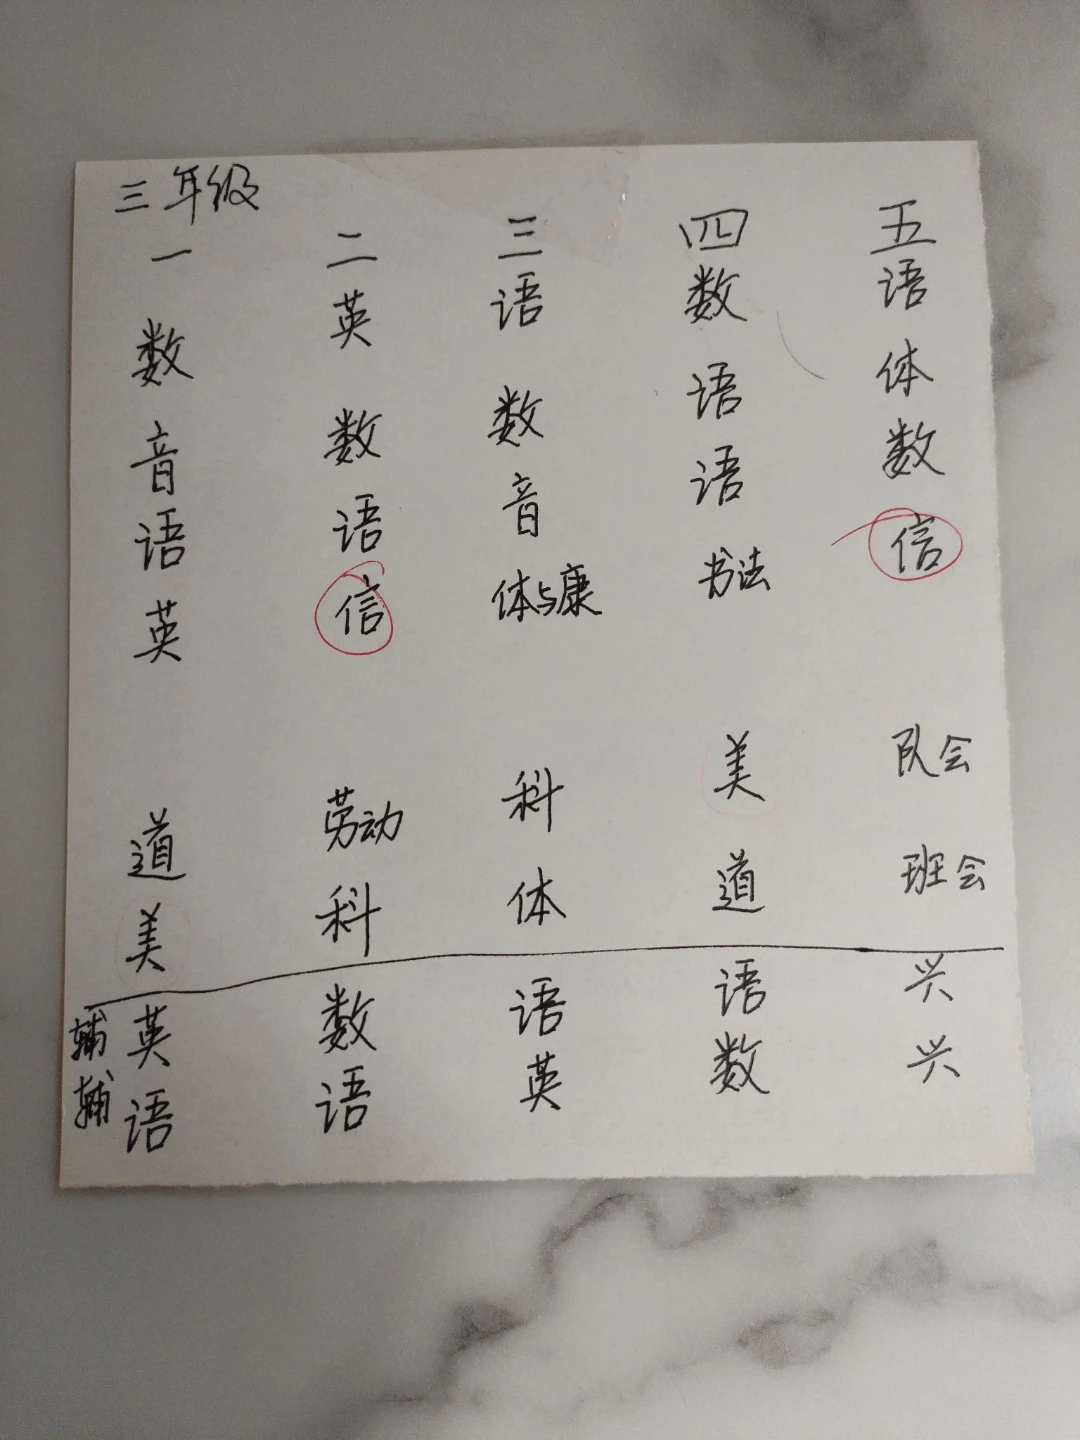 三年级
一 二 三 四 五
数 英 语 数 语
音 数 数 语 体
语 语 音 语 数
英 信 体与康 书法 信
道 劳动 科 美 队会
美 科 体 道 班会
辅 英 数 语 语 兴
辅 语 语 英 数 兴